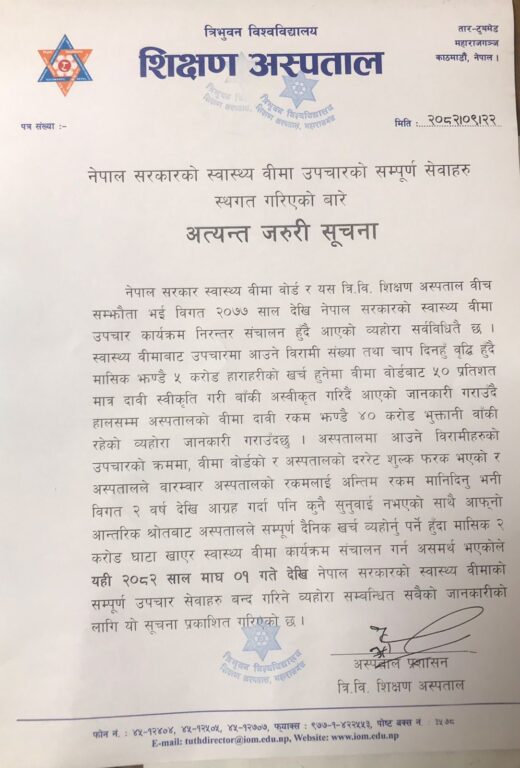 त्रिभुवन विश्वविद्यालय
शिक्षण अस्पताल
तार-टुयमेड
महाराजगञ्ज
काठमाडौं, नेपाल ।
त्रिभुवन विश्वविद्यालय
शिक्षण अस्पताल, महाराजगञ्ज
त्रिभुवन विश्वविद्यालय
शिक्षण अस्पताल, महाराजगञ्ज
पत्र संख्या :-
मिति : २०८२।०९।२२
नेपाल सरकारको स्वास्थ्य वीमा उपचारको सम्पूर्ण सेवाहरु
स्थगत गरिएको बारे
अत्यन्त जरुरी सूचना
नेपाल सरकार स्वास्थ्य वीमा बोर्ड र यस त्रि.वि. शिक्षण अस्पताल वीच
सम्झौता भई विगत २०७७ साल देखि नेपाल सरकारको स्वास्थ्य वीमा
उपचार कार्यक्रम निरन्तर संचालन हुँदै आएको व्यहोरा सर्वविधितै छ ।
स्वास्थ्य वीमाबाट उपचारमा आउने विरामी संख्या तथा चाप दिनहुँ वृद्धि हुँदै
मासिक झण्डै ५ करोड हाराहरीको खर्च हुनेमा वीमा बोर्डबाट ५० प्रतिशत
मात्र दावी स्वीकृति गरी बाँकी अस्वीकृत गरिदै आएको जानकारी गराउँदै
हालसम्म अस्पतालको वीमा दावी रकम झण्डै ४० करोड भुक्तानी वाँकी
रहेको व्यहोरा जानकारी गराउँदछु । अस्पतालमा आउने विरामीहरुको
उपचारको क्रममा, वीमा वोर्डको र अस्पतालको दररेट शुल्क फरक भएको र
अस्पतालले वारम्वार अस्पतालको रकमलाई अन्तिम रकम मानिदिनु भनी
विगत २ वर्ष देखि आग्रह गर्दा पनि कुनै सुनुवाई नभएको साथै आफ्नो
आन्तरिक श्रोतबाट अस्पतालले सम्पूर्ण दैनिक खर्च व्यहोर्नु पर्ने हुँदा मासिक २
करोड घाटा खाएर स्वास्थ्य वीमा कार्यक्रम संचालन गर्न असमर्थ भएकोले
यही २०८२ साल माघ ०१ गते देखि नेपाल सरकारको स्वास्थ्य वीमाको
सम्पूर्ण उपचार सेवाहरु बन्द गरिने व्यहोरा सम्वन्धित सवैको जानकारीको
लागि यो सूचना प्रकाशित गरिएको छ ।
त्रिभुवन विश्वविद्यालय
शिक्षण अस्पताल, महाराजगञ्ज
अस्पताल प्रशासन
त्रि.वि. शिक्षण अस्पताल
फोन नं. : ४५-१२४०४, ४५-१२५०५, ४५-१२७०७, फ्याक्स : ९७७-१-४२२५५३, पोष्ट बक्स नं : ३५७८
E-mail: tuthdirector@iom.edu.np, Website: www.iom.edu.np